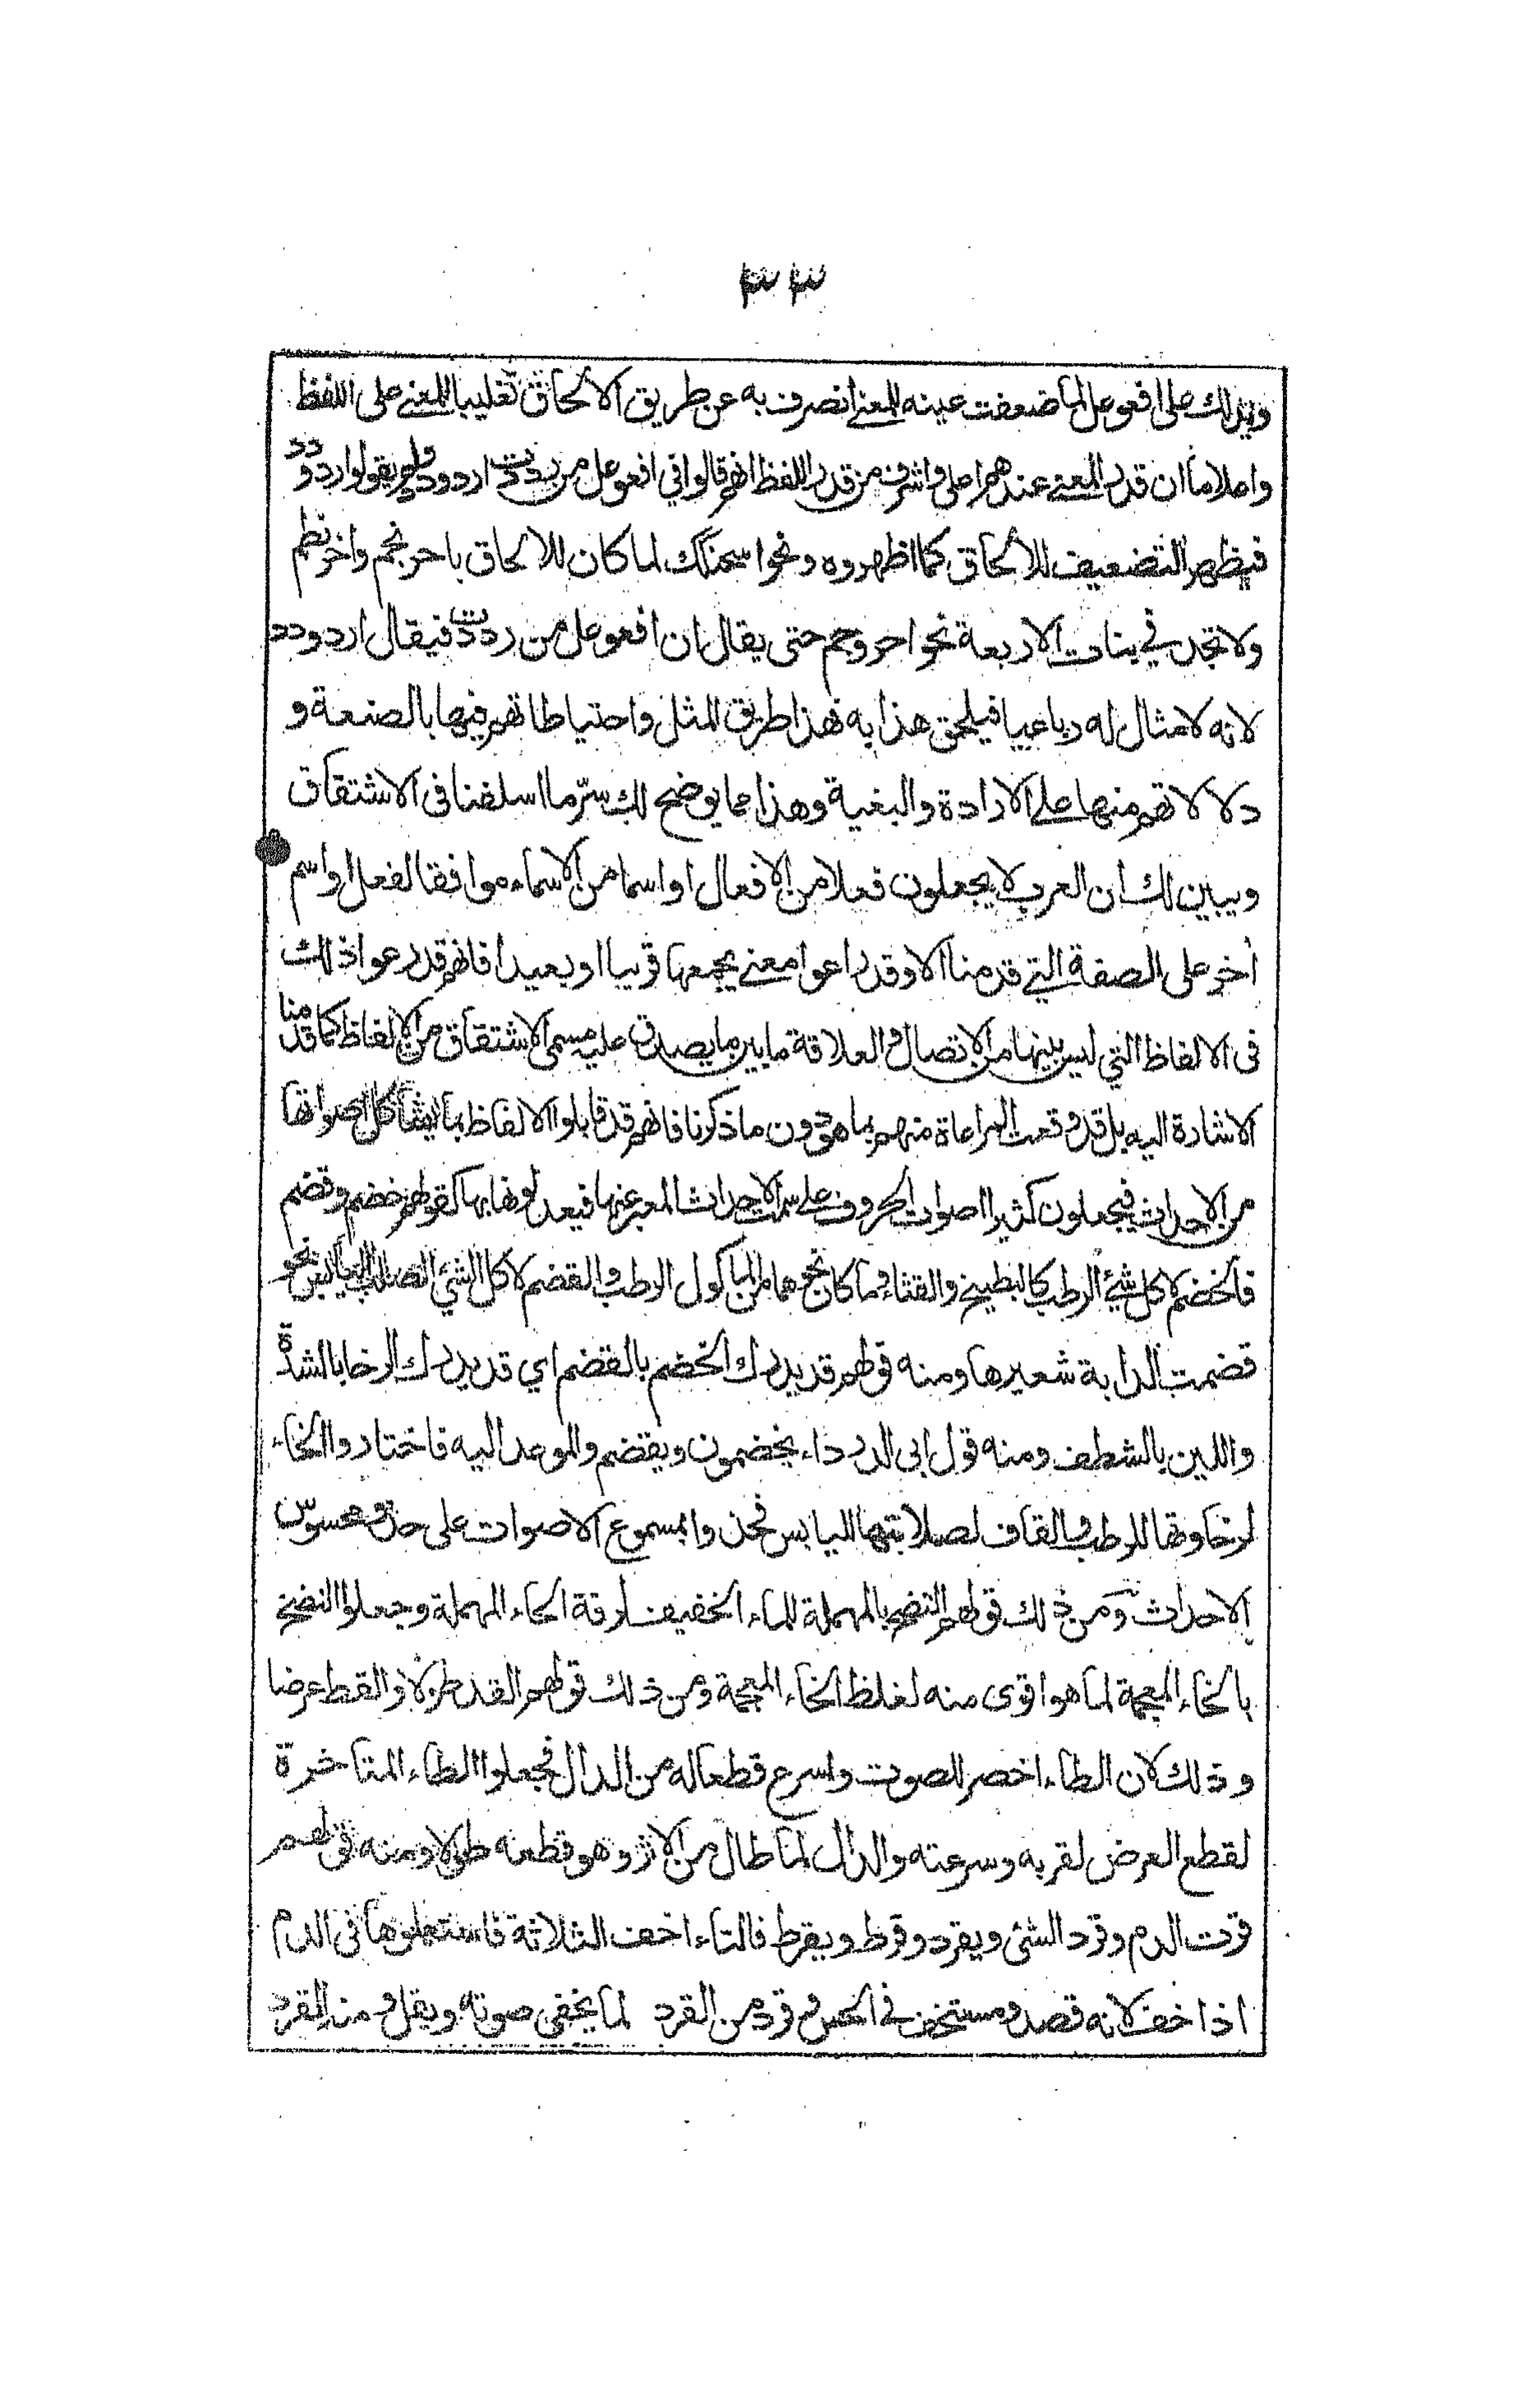 ٣٣
ويدلك على افعوعل لما ضعفت عينه للمعنى انصرف به عن طريق الالحاق تغليبا للمعنى على اللفظ
واعلاما ان قدر المعنى عندهم اعلى واشرف من قدر اللفظ انهم قالوا في افعوعل من رددت اردود ولم يقولوا اردودد
فيظهر التضعيف للالحاق كما اظهروه ونحوا سحنكك لما كان للالحاق باحرنجم واخرنطم
ولا تجد في بنات الاربعة نحو احروجم حتى يقال ان افعوعل من رددت فيقال اردودد
لانه لا مثال له رباعيا فيلحق هذا به فهذا طريق المثل واحتياطاتهم فيها بالصنعة و
دلالاتهم منها على الارادة والبغية وهذا مما يوضح لك سرّ ما اسلفنا فى الاشتقاق
ويبين لك ان العرب لا يجعلون فعلا من الافعال او اسما من الاسماء موافقا لفعل او اسم
أخر على الصفة التي قدمنا الا وقد راعوا معنى يجمعها قريبا او بعيدا فانهم قد رعوا ذلك
فى الالفاظ التي ليس بينها من الاتصال والعلاقة ما بين ما يصدق عليه مسمى الاشتقاق من الالفاظ كما قدمنا
الاشارة اليه بل قد وقعت المراعاة منهم بما هو دون ما ذكرنا فانهم قد قابلوا الالفاظ بما يشاكل اصواتها
من الاحداث فيجعلون كثيرا اصوات الحروف على سمت الاحداث المعبر عنها فيعدلونها بها كقولهم خضم وقضم
فالخضم لاكل شيء الرطب كالبطيخ والقثاء وما كان نحوهما من المأكول الرطب والقضم لاكل الشيء الصلب اليابس نحو
قضمت الدابة شعيرها ومنه قولهم قد يدرك الخضم بالقضم اي قد يدرك الرخا بالشدة
واللين بالشطف ومنه قول ابى الدرداء يخضمون ويقضم والموعد اليه فاختاروا الخاء
لرخاوتها للرطب والقاف لصلابتها لليابس فحذوا بمسموع الاصوات على حذو محسوس
الاحداث ومن ذلك قولهم النضح بالمهملة للماء الخفيف لرقة الحاء المهملة وجعلوا النضخ
بالخاء المعجمة لما هو اقوى منه لغلظ الخاء المعجمة ومن ذلك قولهم القد طولا والقط عرضا
وذلك لان الطاء اخصر للصوت واسرع قطعا له من الدال فجعلوا الطاء المتاخرة
لقطع العرض لقربه وسرعته والدال لما طال من الاثر وهو قطعه طولا ومنه قولهم
قرت الدم وقرد الشئ ويقرد وقرط ويقرط فالتاء اخف الثلاثة فاستعملوها فى الدم
اذا خف لانه قصد ومستخف في الحس وقرد من القرد لما يخفى صوته ويقل و منه القرد